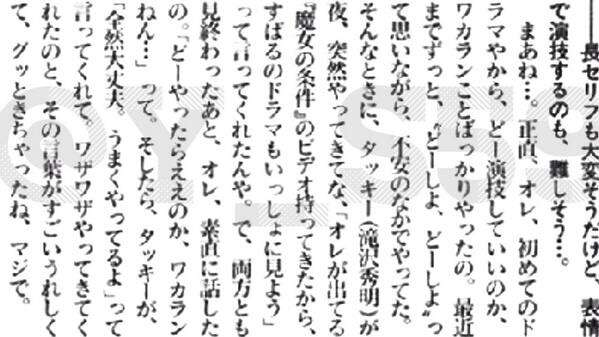 ――長セリフも大変そうだけど、表情
で演技するのも、難しそう…。
まあね…。正直、オレ、初めてのド
ラマやから、どー演技していいのか、
ワカランことばっかりやったの。最近
までずっと、〝どーしよ、どーしよ〟っ
て思いながら、不安のなかでやってた。
そんなときに、タッキー(滝沢秀明)が
夜、突然やってきてな、「オレが出てる
『魔女の条件』のビデオ持ってきたから、
すばるのドラマもいっしょに見よう」
って言ってくれたんや。で、両方とも
見終わったあと、オレ、素直に話した
の。「どーやったらええのか、ワカラン
ねん…」って。そしたら、タッキーが、
「全然大丈夫。うまくやってるよ」って
言ってくれて。ワザワザやってきてく
れたのと、その言葉がすごいうれしく
て、グッときちゃったね、マジで。